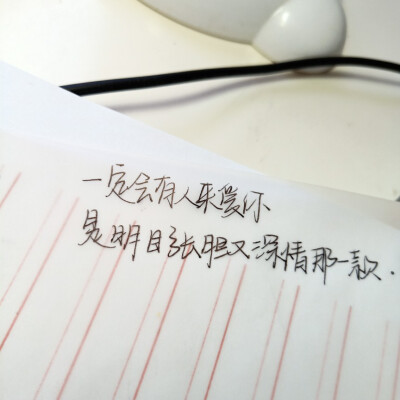 一定会有人来爱你
是明目张胆又深情那一款.